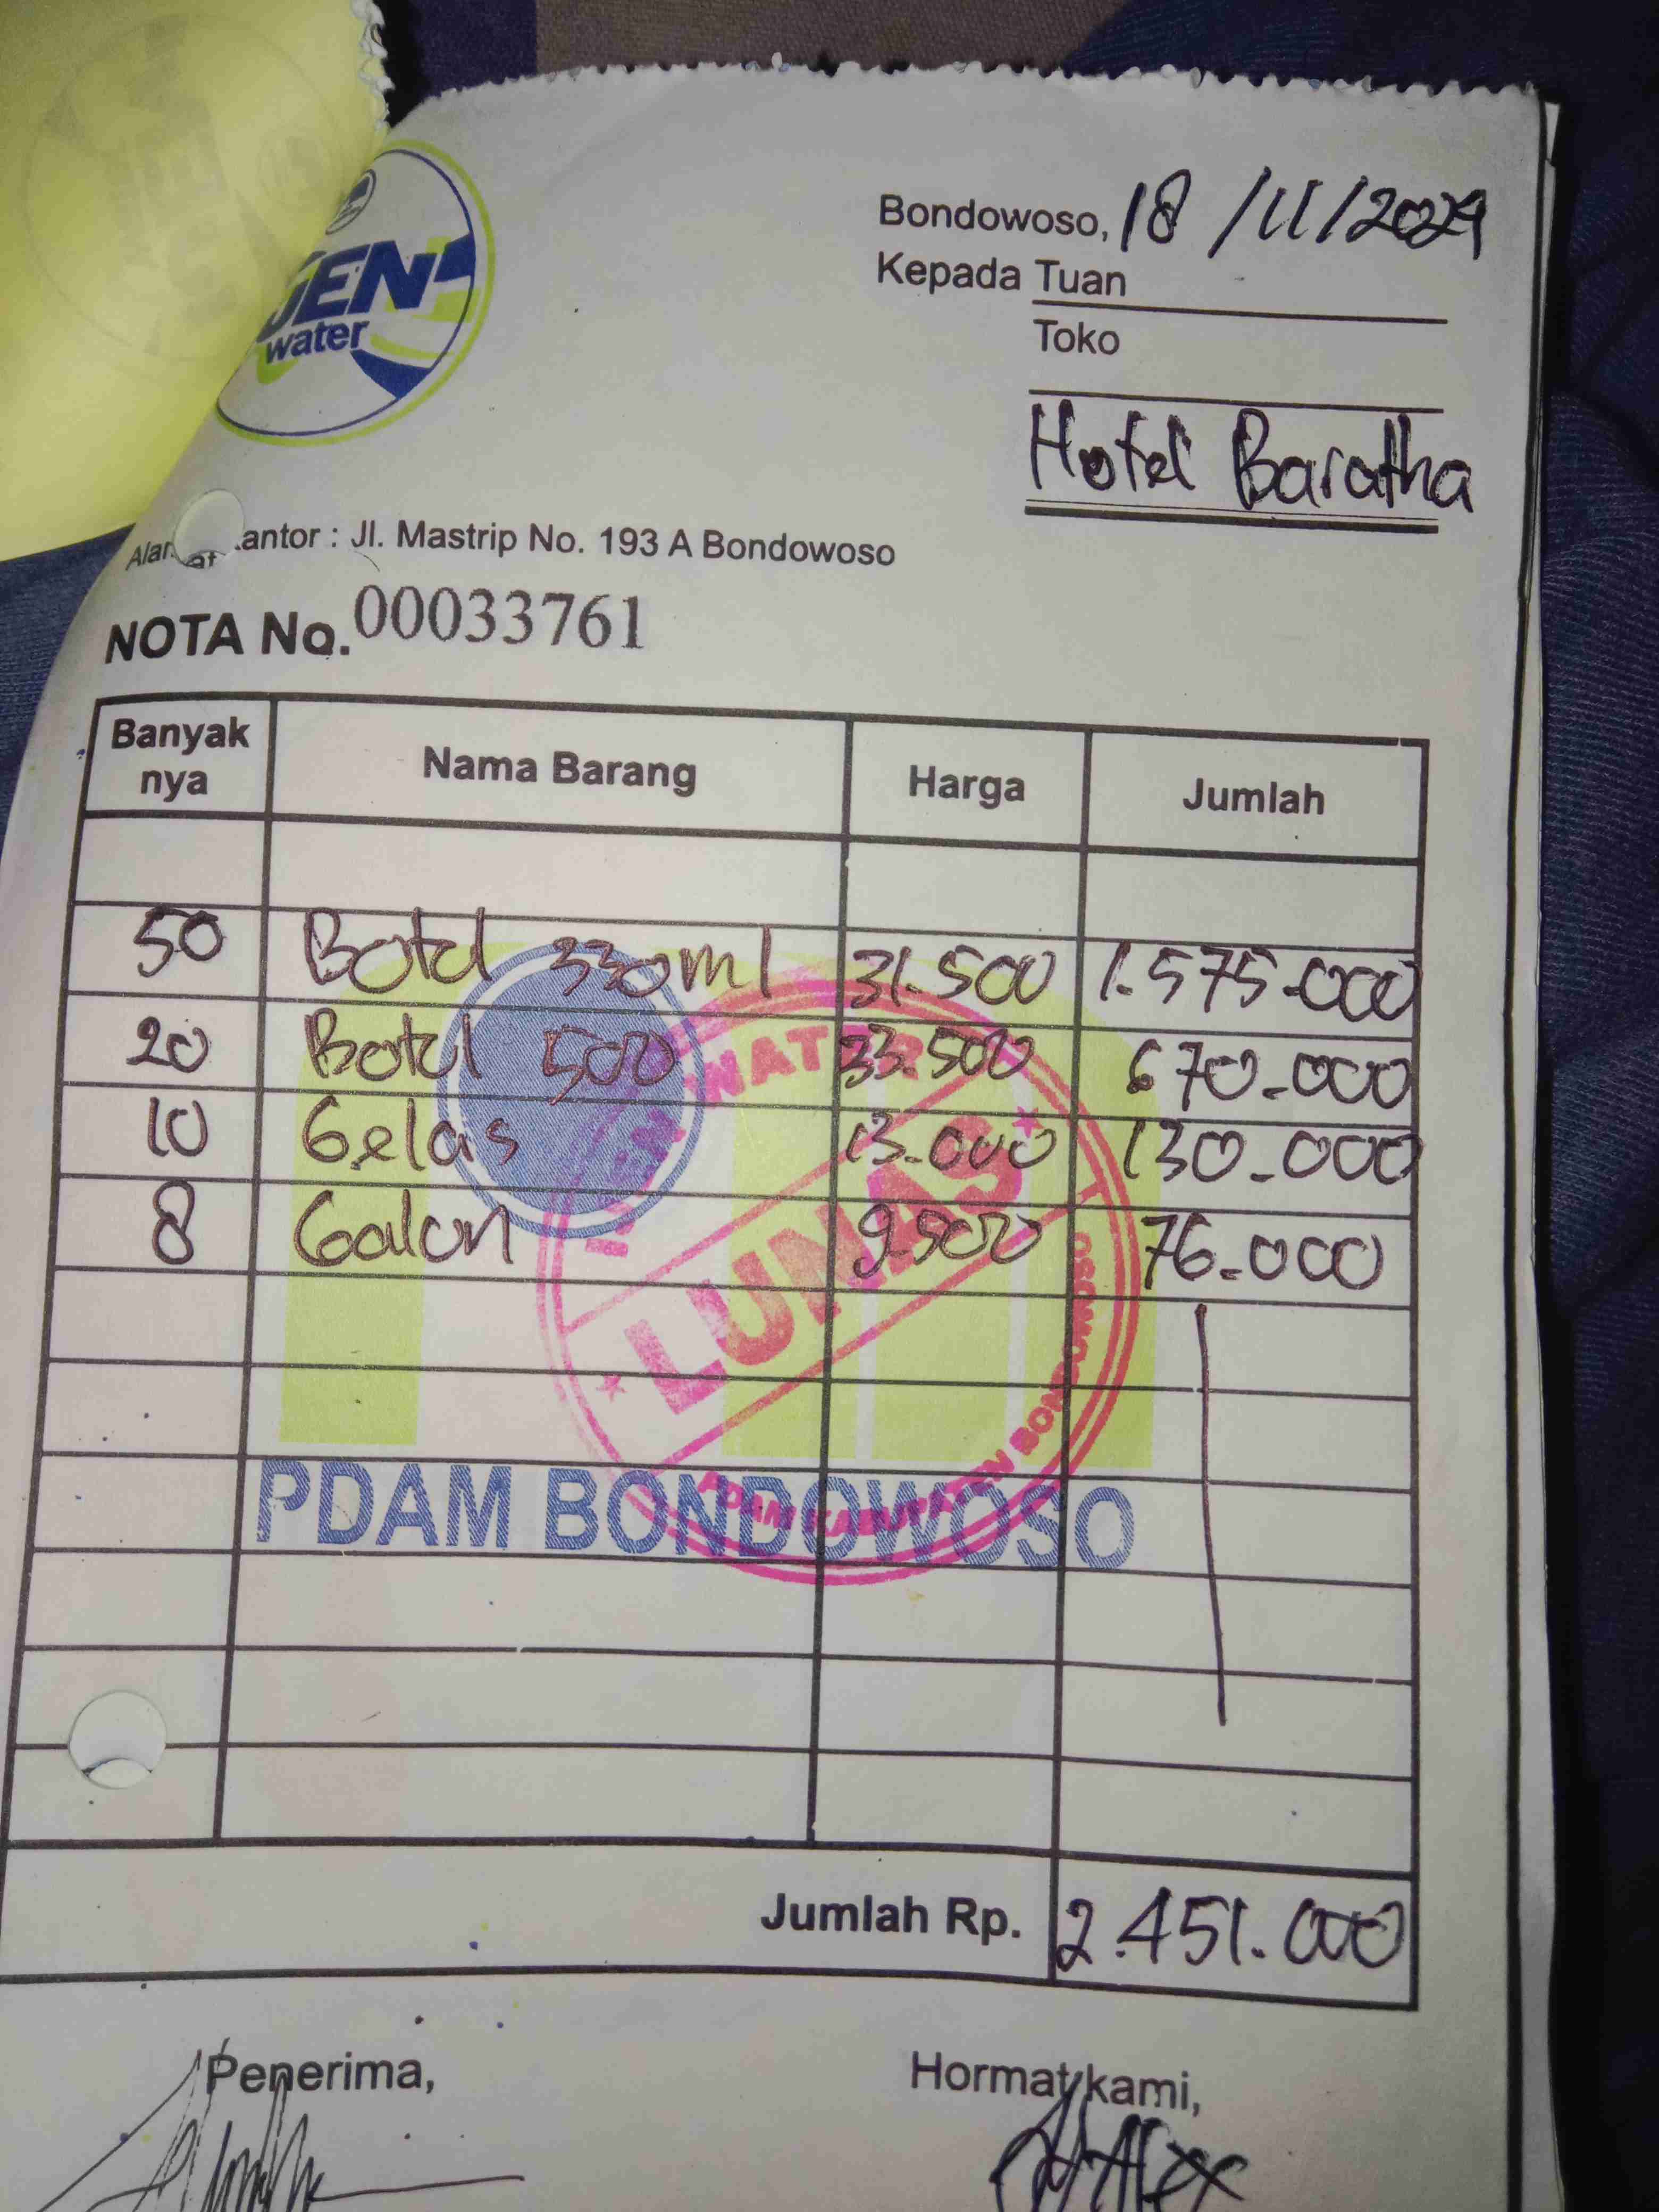 GEN
water
Bondowoso, 18/11/2024
Kepada Tuan
Toko
Hotel Baratha
Kantor : Jl. Mastrip No. 193 A Bondowoso
NOTA No. 00033761
Banyak nya Nama Barang Harga Jumlah
50 Botol 330ml 31.500 1.575.000
20 Botol 500 33.500 670.000
10 Gelas 13.000 130.000
8 Galon 9.500 76.000
WATER
LUNAS
PDAM KABUPATEN BONDOWOSO
PDAM BONDOWOSO
Jumlah Rp. 2.451.000
Penerima, Hormat kami,